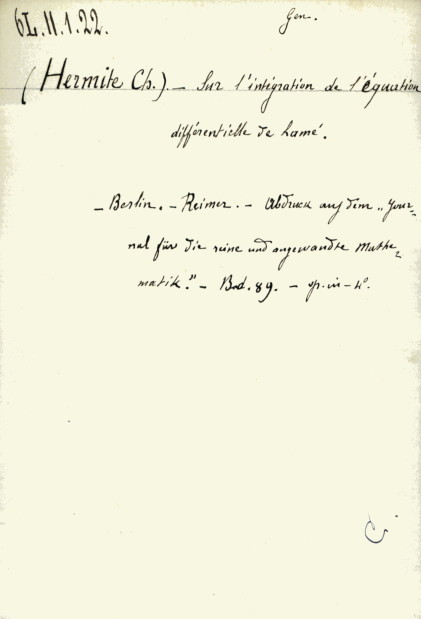 6L.II.1.22.
Gen.
(Hermite Ch.). — Sur l'intégration de l'équation
différentielle de Lamé.
— Berlin. — Reimer. — Abdruck auf dem „Jour-
nal für die reine und angewandte Mathe-
matik." — Bd. 89. — in-4°.